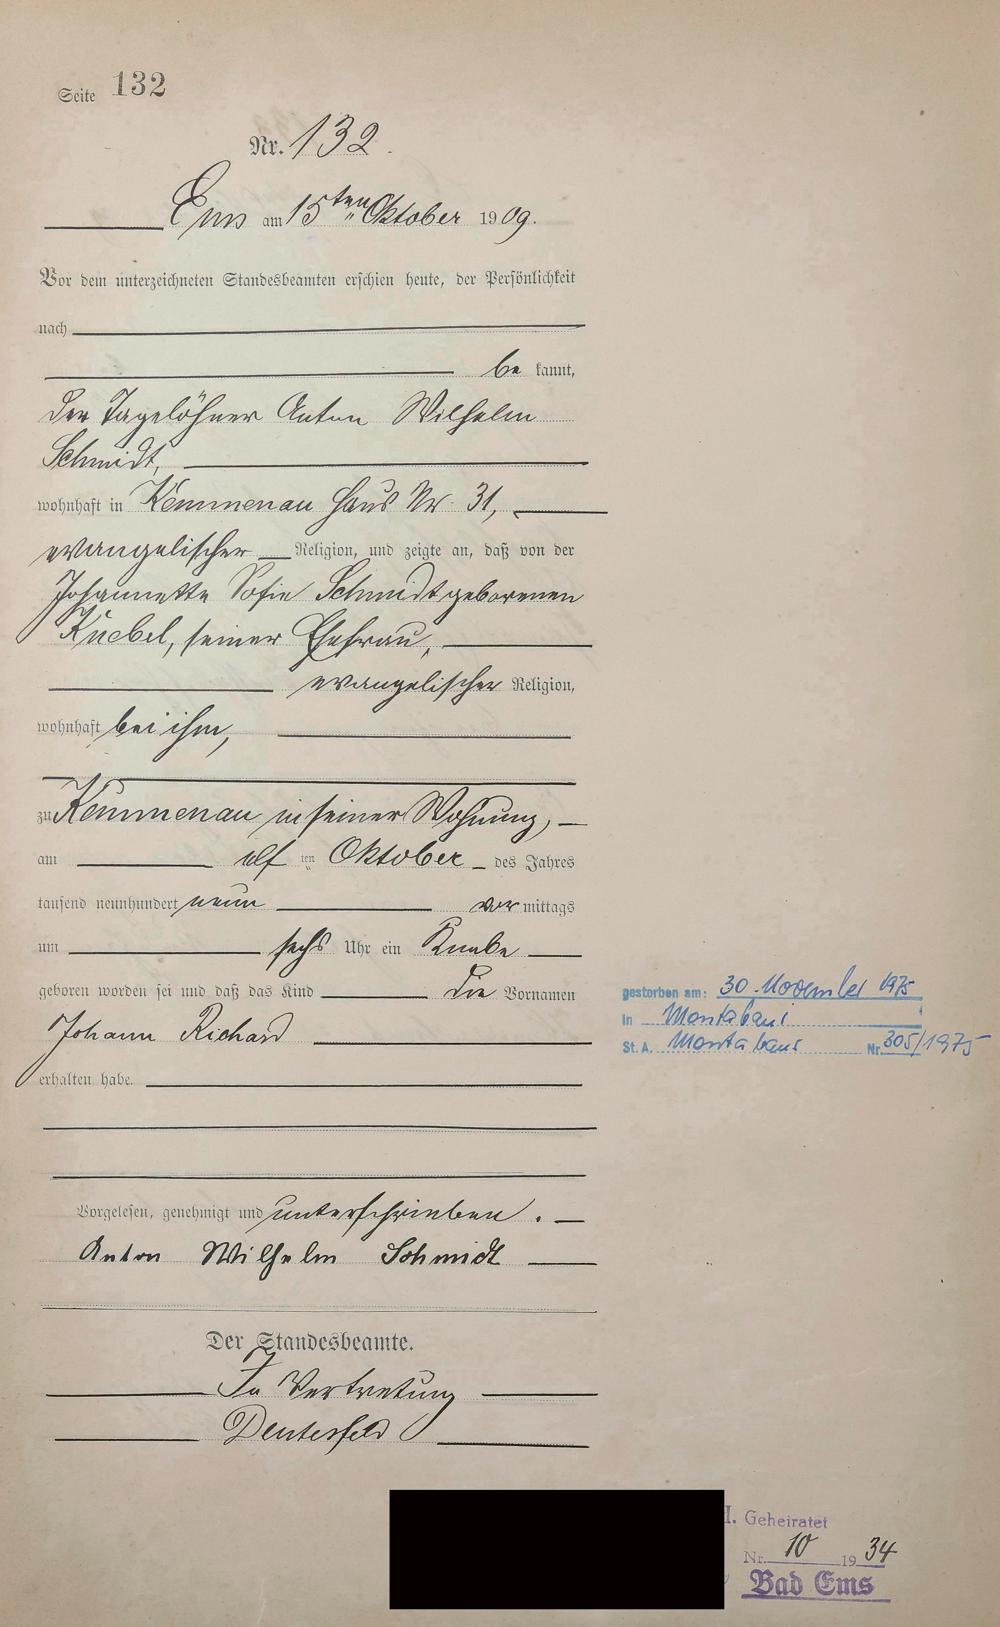 Seite 132
Nr. 132.
Ems am 15ten Oktober 1909.
Vor dem unterzeichneten Standesbeamten erschien heute, der Persönlichkeit
nach
be kannt,
der Tagelöhner Anton Wilhelm
Schmidt,
wohnhaft in Kemmenau Haus Nr. 31,
evangelischer Religion, und zeigte an, daß von der
Johannette Sofie Schmidt geborenen
Knebel, seiner Ehefrau,
evangelischer Religion,
wohnhaft bei ihm,
zu Kemmenau in seiner Wohnung,
am elf ten Oktober des Jahres
tausend neunhundert neun vor mittags
um sechs Uhr ein Knabe
geboren worden sei und daß das Kind die Vornamen
Johann Richard
erhalten habe.
Vorgelesen, genehmigt und unterschrieben.
Anton Wilhelm Schmidt
Der Standesbeamte.
In Vertretung
gestorben am: 30. November 1975
in Montabaur
St. A. Montabaur Nr. 305/1975
Geheiratet
Nr. 10 1934
Bad Ems